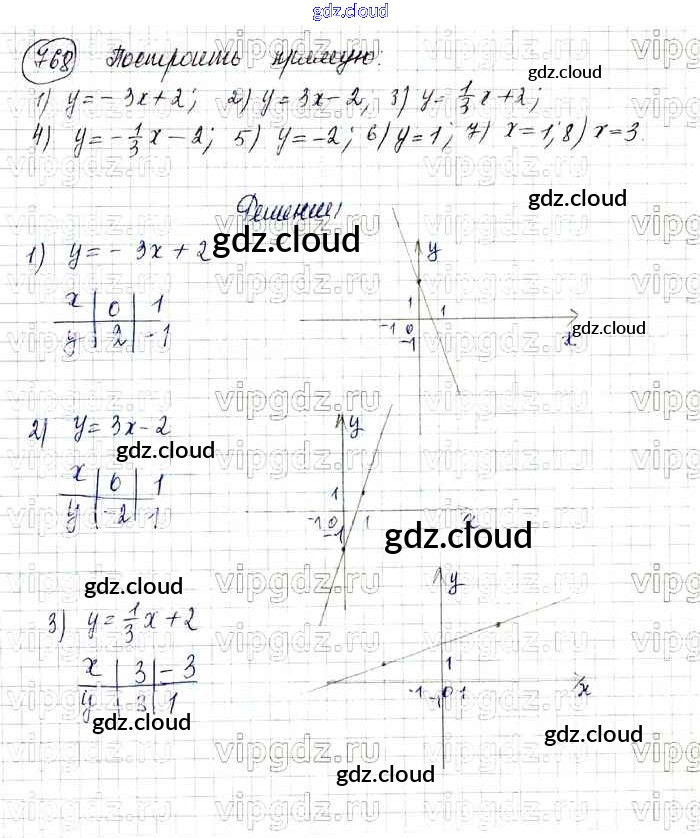 gdz.cloud
768 Построить прямую:
1) y = -3x+2; 2) y = 3x-2; 3) y = 1/3 x+2;
4) y = -1/3 x - 2; 5) y = -2; 6) y = 1; 7) x = 1; 8) x = 3.
gdz.cloud
gdz.cloud
Решение
1) y = -3x+2
gdz.cloud
x 0 1
y 2 -1
y
1
-1 0 1
-1
x
gdz.cloud
2) y = 3x-2
gdz.cloud
x 0 1
y -2 1
y
1
-1 0 1
-1
x
gdz.cloud
gdz.cloud
3) y = 1/3 x+2
x 3 -3
y 3 1
gdz.cloud
y
1
-1 0 1
-1
x
gdz.cloud
gdz.cloud
vipgdz.ru